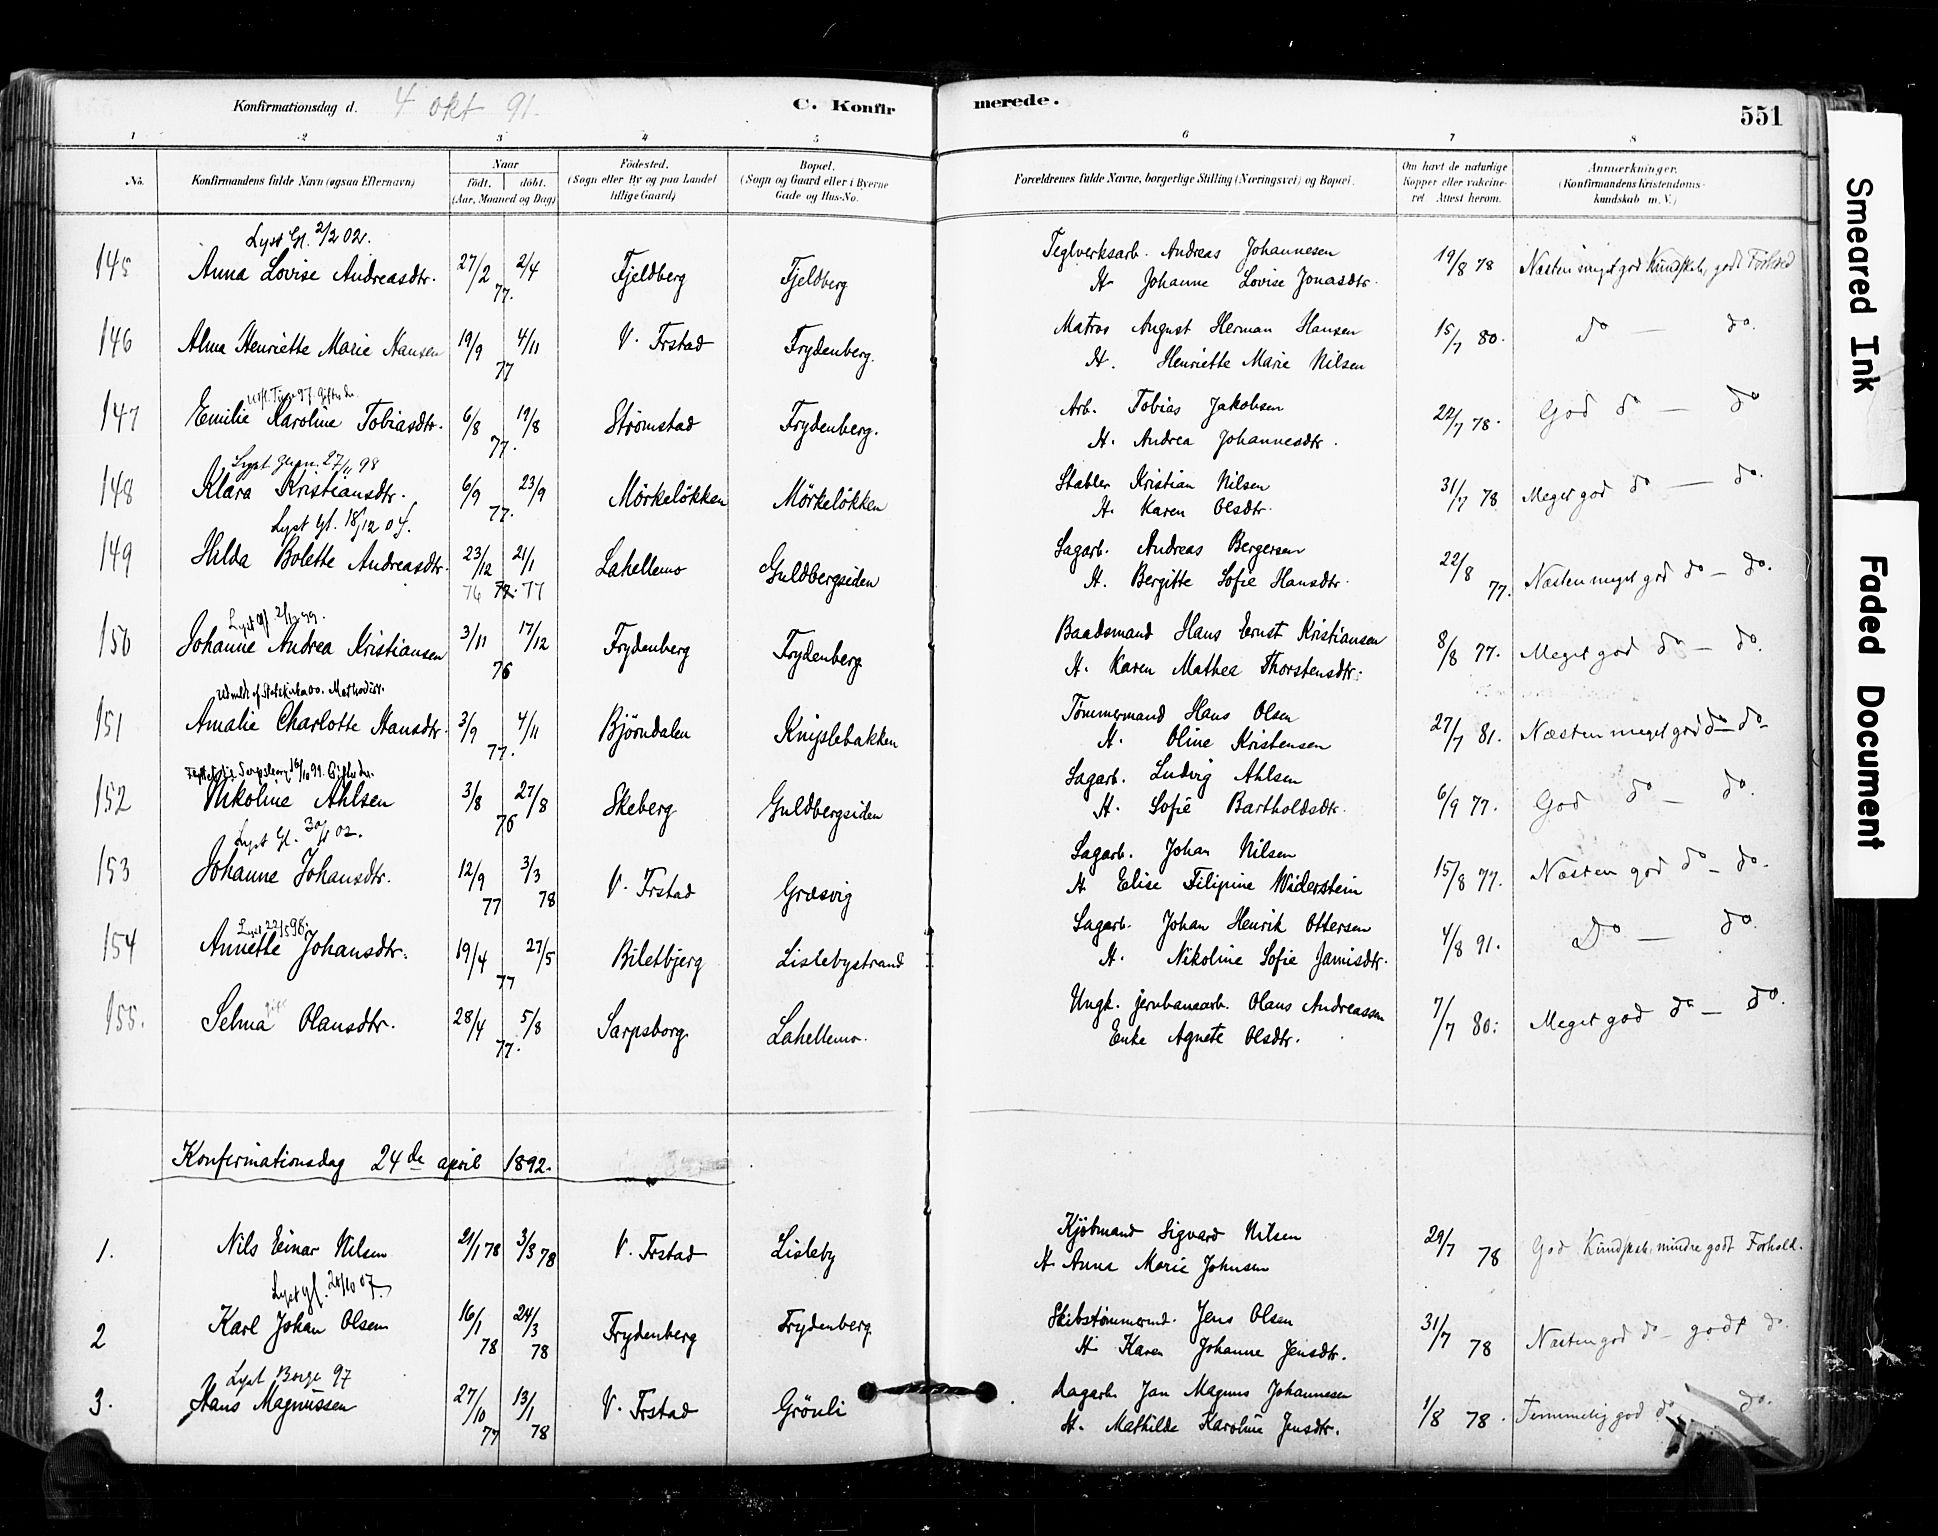 Konfirmationsdag d. 4 okt 91. C. Konfirmerede. 551
1 2 3 4 5 6 7 8
No. Konfirmandens fulde Navn (ogsaa Efternavn) Naar födt. döbt. (Aar, Maaned og Dag) Födested. (Sogn eller By og paa Landet tillige Gaard) Bopæl. (Sogn og Gaard eller i Byerne Gade og Hus-No. Forældrenes fulde Navne, borgerlige Stilling (Næringsvei) og Bopæl. Om havt de naturlige Kopper eller vakcineret Attest herom. Anmærkninger. (Konfirmandens Kristendomskundskab m. V.)
Lyst Gl. 2/2 02.
145 Anna Lovise Andreasdtr. 27/2 2/4 77. Fjeldberg Fjeldberg Teglverksarb. Andreas Johannesen 19/8 78 Næsten meget god Kundskab, godt Forhold
H. Johanne Lovise Jonasdtr.
146 Alma Henriette Marie Hansen 19/9 4/11 77 V. Frstad Frydenberg. Matros August Herman Hansen 15/7 80. do — do.
H. Henriette Marie Nilsen
147 Emilie Karoline Tobiasdtr. 6/8 19/8 77. Strømstad Frydenberg. Arb. Tobias Jakobsen 22/7 78. God do — do
H. Andrea Johannesdtr.
Lyst 27/11 98
148 Klara Kristiansdtr. 6/9 23/9 77. Mörkelökken Mörkelökken Stabler Kristian Nilsen 31/7 78 Meget god do — do.
H. Karen Olsdtr.
Lyst Gl. 18/12 04.
149 Hilda Bolette Andreasdtr. 23/12 21/1 76 77. 77 Lahellemo Guldbergsiden Sagarb. Andreas Bergersen 22/8 77. Næsten meget god do — do.
H. Bergitte Sofie Hansdtr.
Lyst
150 Johanne Andrea Kristiansen 3/11 17/12 76 Frydenberg Frydenberg. Baadsmand Hans Ernst Kristiansen 8/8 77. Meget god do — do.
H. Karen Mathea Thorstensdtr.
Udmeldt af Statskirken 00. Methodist.
151 Amalie Charlotte Hansdtr. 3/9 4/11 77. Björndalen Knipslebakken Tömmermand Hans Olsen 27/7 81. Næsten meget god do — do
H. Oline Kristensen
Sarpsborg 16/10 99.
152 Nikoline Ahlsen 3/8 27/8 76 Skeberg Guldbergsiden Sagarb. Ludvig Ahlsen 6/9 77. God do — do.
H. Sofie Bartholdsdtr.
Lyst Gl. 02.
153 Johanne Johansdtr. 12/9 77 3/3 78 V. Frstad Græsvig Sagarb. Johan Nilsen 15/8 77. Næsten god do — do.
H. Elise Filipine Widerstein
Lyst 22/5 98.
154 Annette Johansdtr. 19/4 27/5 77 Biletbjerg Lislebystrand Sagarb. Johan Henrik Ottersen 4/8 91. Do — do.
H. Nikoline Sofie Jamisdtr.
155. Selma Olausdtr. 28/4 5/8 77. Sarpsborg Lahellemo. Ungk. jernbanearb. Olaus Andreassen 7/7 80. Meget god do — do.
Enke Agnete Olsdtr.
Konfirmationsdag 24de april 1892.
1. Nils Einar Nilsen 21/1 78 3/3 78 V. Frstad Lisleby Kjöbmand Sigvard Nilsen 29/7 78 God Kundskab, mindre godt Forhold.
H. Anna Marie Johnsen
Lyst gl. 07.
2 Karl Johan Olsen 16/1 78 24/3 78 Frydenberg Frydenberg Skibstömmermd. Jens Olsen 31/7 78 Næsten god do — godt do.
H. Karen Johanne Jensdtr.
Lyst Borge 97
3. Hans Magnussen 27/10 77 13/1 78 V. Frstad Grönli Sagarb. Jan Magnus Johannesen 1/8 78. Temmelig god do do.
H. Mathilde Karoline Jensdtr.
Smeared Ink
Faded Document